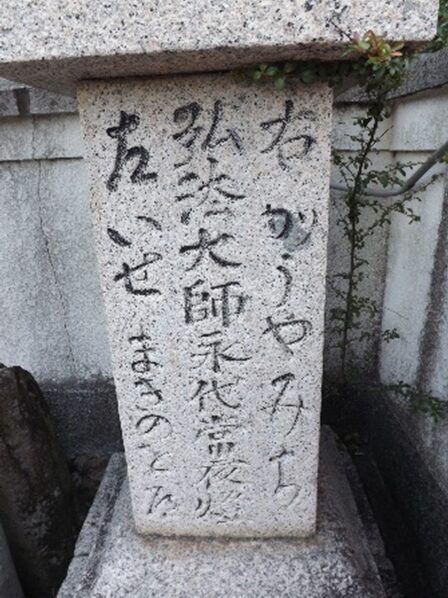 右 かうやみち
弘法大師永代常夜燈
左 いせ まきの